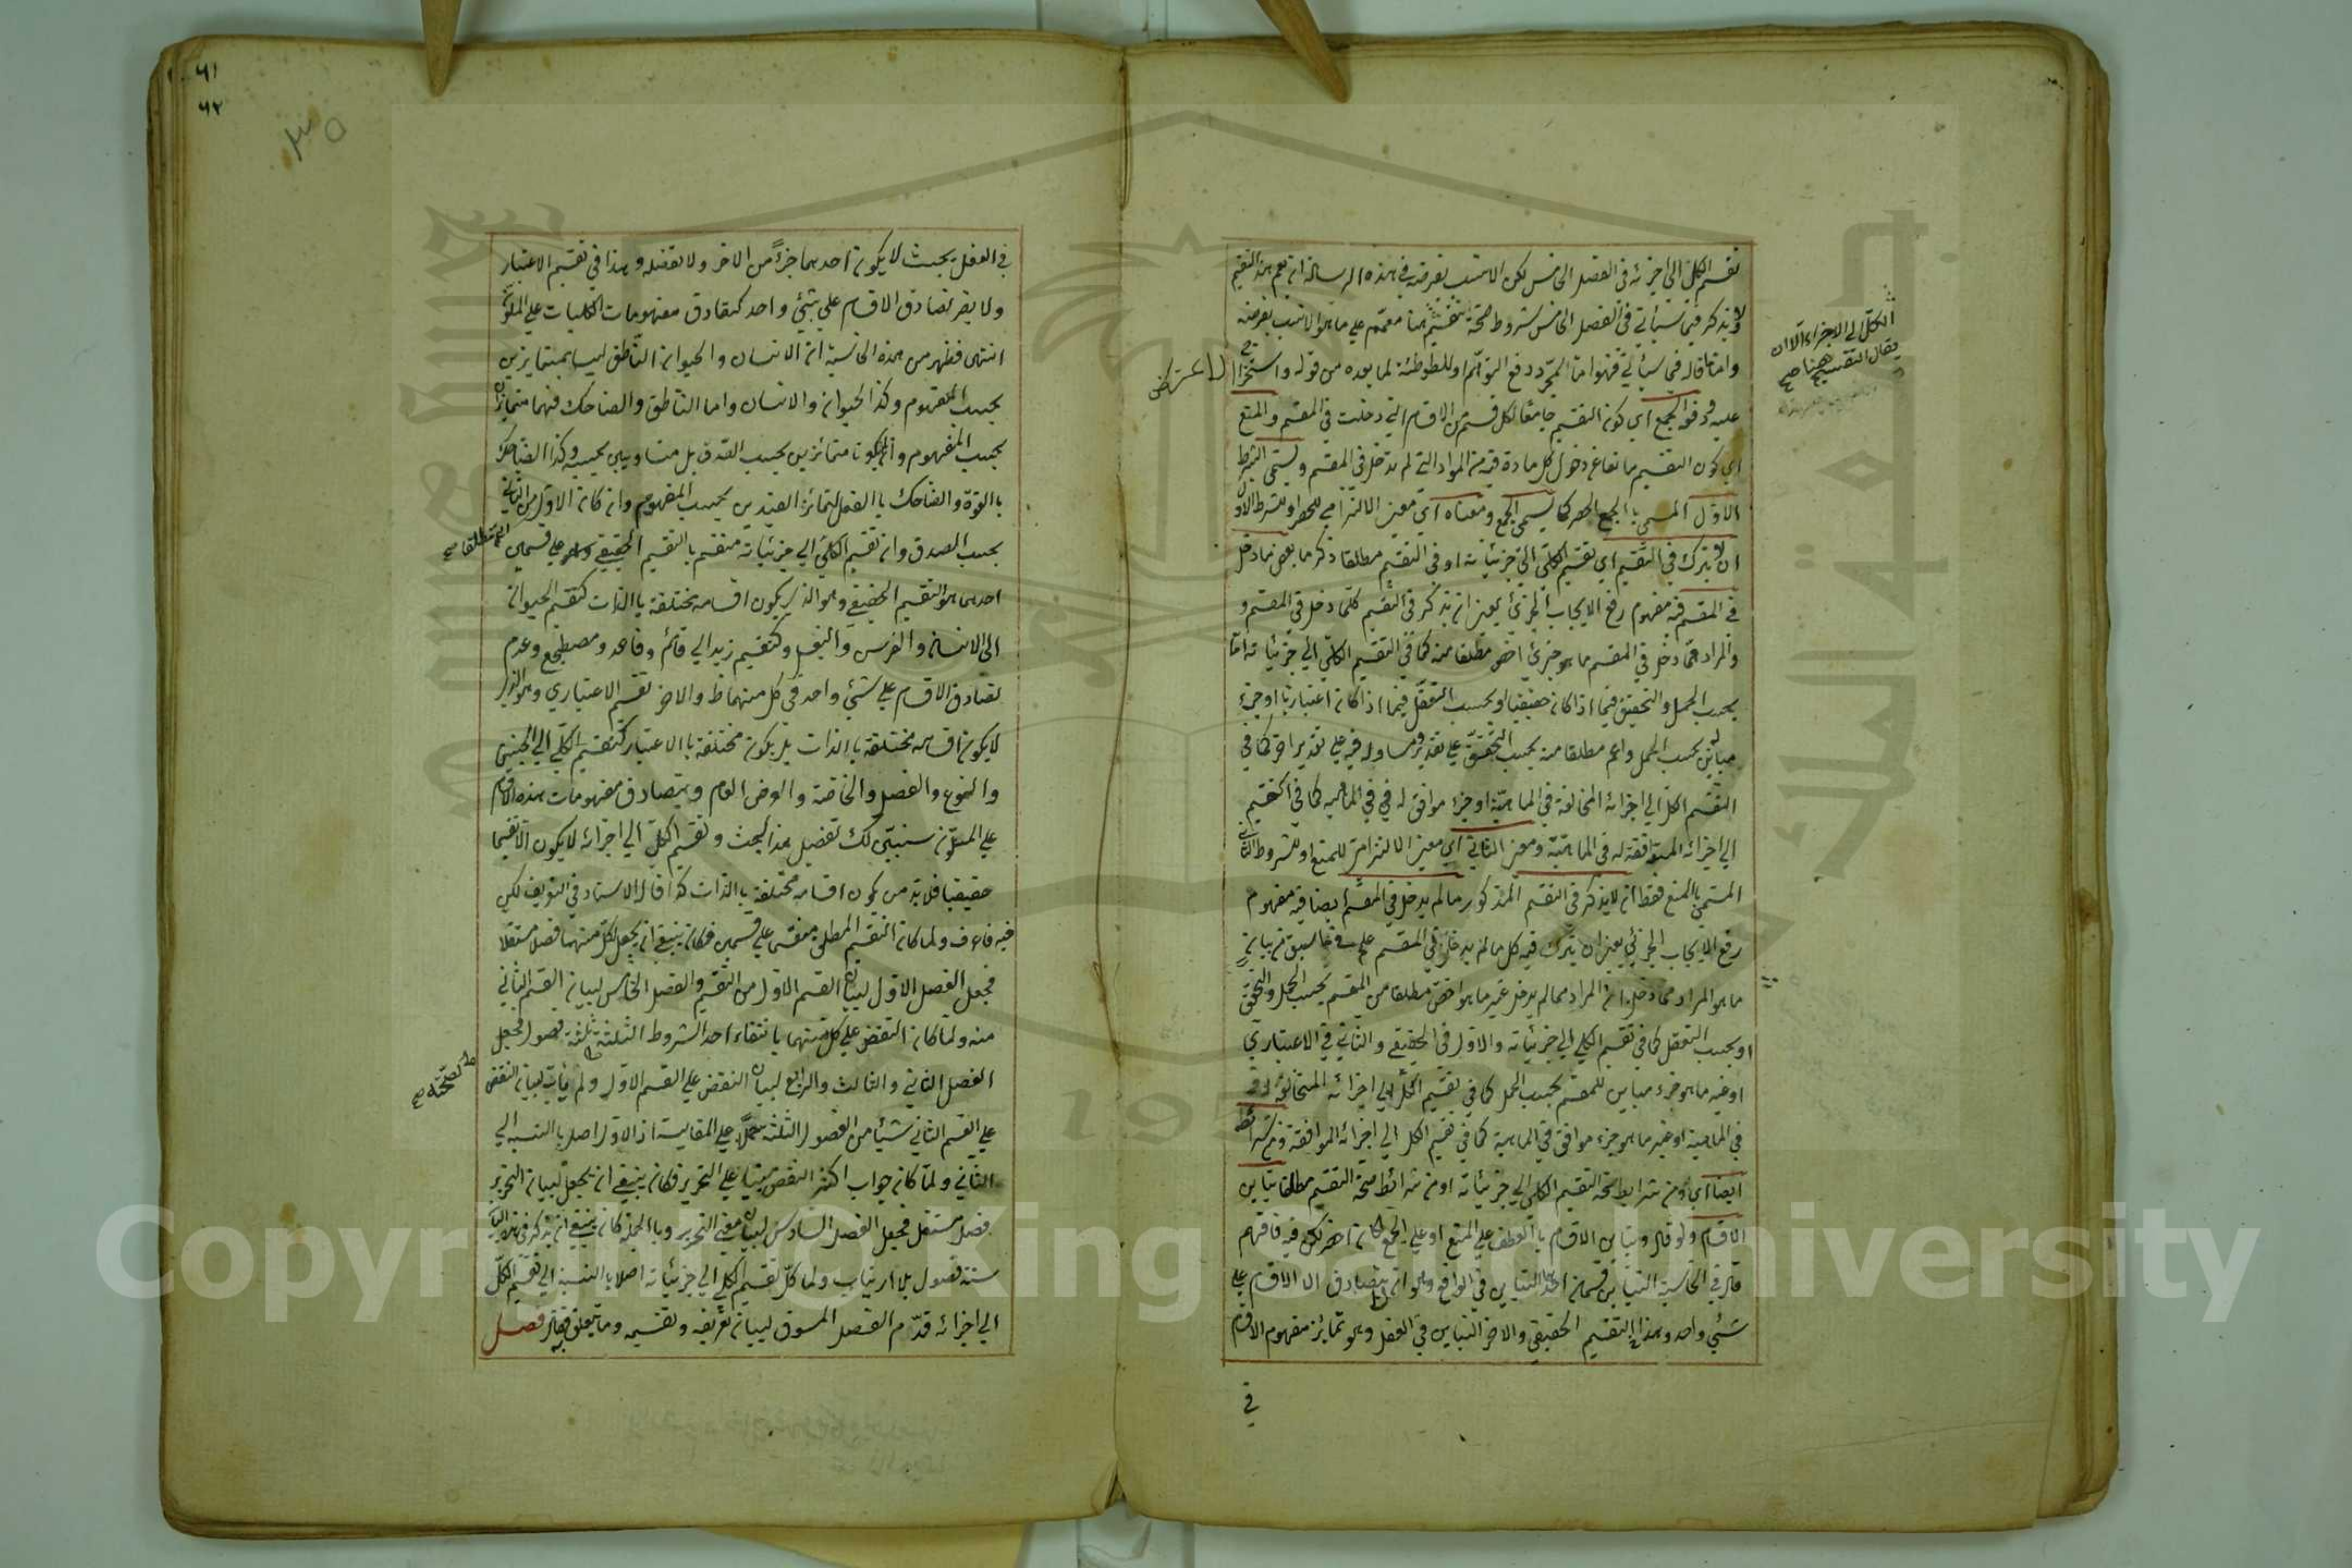 تقسيم الكل الى اجزائه فى الفصل الخامس لكن الانسب بغرضه فى هذه الرسالة ان يعم هذا التقسيم
ولا يذكر فيما سيأتي في الفصل الخامس شروط صحة تقسيم هنا معمم علي ما هو الانسب بغرضه
واما ما قاله فى سيأتي فهو اما لمجرد دفع التوهم او للتوطئة لما بعده من قوله واستخراج
عليه وقوله الجمع اي كون التقسيم جامعا لكل قسم من الاقسام التي دخلت في المقسم والمنع
اي كون التقسيم مانعا عن دخول كل مادة فيه من المواد التي لم تدخل في المقسم ويسمى الشرط
الاول المسمى بالجمع الحصر كما يسمى الجمع ومعناه اي معنى الالتزامي للحصر وللشرط الاول
ان لا يترك في التقسيم اي تقسيم الكلي الى جزئياته او فى التقسيم مطلقا ذكر ما بعض ما دخل
في المقسم فيه مفهوم رفع الايجاب الجزئي يعني ان يذكر في التقسيم كلما دخل في المقسم و
والمراد مما دخل في المقسم ما هو جزئي اخص مطلقا منه كما في التقسيم الكلي الي جزئياته اما
بحسب الحمل والتحقيق فيما اذا كان حقيقيا او بحسب التعقل فيما اذا كان اعتباريا او جزء
مباين له بحسب الحمل واعم مطلقا منه بحسب التحقق علي تقدير ومساو له فيه علي تقدير اخر كما في
التقسيم الكل الي اجزائه المخالفة في الماهية او جزء موافق له في الماهية كما في التقسيم
الي اجزائه المتوافقة له في الماهية ومعنى الثاني اي معنى الالتزامي للمنع وللشروط الثاني
المسمى بالمنع فقط ان لا يذكر في التقسيم المذكور ما لم يدخل في المقسم ايضا فيه مفهوم
رفع الايجاب الجزئي يعني ان يترك فيه كل ما لم يدخل في المقسم علي وفق ما سبق من بيان
ما هو المراد مما دخل ان المراد مما لم يدخل غير ما هو اخص مطلقا من المقسم بحسب الحمل والتحقق
او بحسب التعقل كما في تقسيم الكلي الي جزئياته والاول في الحقيقي والثاني في الاعتباري
او غير ما هو جزء مباين للمقسم بحسب الحمل كما في تقسيم الكل الي اجزائه المتخالفة له
في الماهية او غير ما هو جزء موافق في الماهية كما في تقسيم الكل الي اجزائه الموافقة ومن شرائط
ايضا اي ومن شرايط صحة التقسيم الكلي الي جزئياته او من شرائط صحة التقسيم مطلقا تباين
الاقسام ولو قال وتباين الاقسام بالعطف علي المنع او علي الجمع لكان اخصر لكن فيه فافهم
قال في الحاشية التباين قسمان احدهما التباين في الواقع وهو ان لا يتصادق الاقسام علي
شئي واحد وهذا في التقسيم الحقيقي والاخر التباين في العقل وهو تمايز مفهوم الاقسام
في
الكل الي الاجزاء الا ان
يقال التقسيم ههنا صح
الاعتراض
٦١
٦٢
٣٥
في العقل بحيث لا يكون احدهما جزءً من الاخر ولا نفسه وهذا في تقسيم الاعتبار
ولا يضر تصادق الاقسام علي شئي واحد كتصادق مفهومات الكليات علي الملون
انتهى فظهر من هذه الحاشية ان الانسان والحيوان الناطق ليسا بمتمايزين
بحسب المفهوم وكذا الحيوان والانسان واما الناطق والضاحك فهما متمايزان
بحسب المفهوم وان لم يكونا متمائزين بحسب الصدق بل متساويين بحسبه وكذا الضاحك
بالقوة والضاحك بالفعل لتمائز القيدين بحسب المفهوم وان كان الاول من الثاني
بحسب الصدق وان تقسيم الكلي الي جزئياته منقسم بالتقسيم الحقيقي وهو علي قسمين
احدهما هو التقسيم الحقيقي وهو الذي يكون اقسامه مختلفة بالذات كتقسيم الحيوان
الى الانسان والفرس والبغل وكتقسيم زيد الي قائم وقاعد ومضطجع وعدم
تصادق الاقسام علي شئي واحد في كل منهما ظ والاخر تقسيم الاعتباري وهو الذي
لا يكون اقسامه مختلفة بالذات بل يكون مختلفة بالاعتبار كتقسيم الكلي الي الجنس
والنوع والفصل والخاصة والعرض العام ويتصادق مفهومات هذه الاقسام
علي الملون سنبين لك تفصيل هذا البحث وتقسيم الكل الي اجزائه لا يكون الا تقسيما
حقيقيا فلا بد من يكون اقسامه مختلفة بالذات كذا قال الاستاد في التعريف لكن
فيه فاعرف ولما كان التقسيم المطلق منقسما علي قسمين فكان ينبغي ان يجعل لكل منهما فصل مستقلا
فجعل الفصل الاول لبيان القسم الاول من التقسيم والفصل الخامس لبيان القسم الثاني
منه ولما كان النقض علي كل منهما بانتفاء احد الشروط الثلثة ثلثة فصول فجعل
الفصل الثاني والثالث والرابع لبيان النقض علي القسم الاول ولم يأت لبيان النقض
علي القسم الثاني شيئا من الفصول الثلثة حملا علي المقايسة اذ الاول اصل بالنسبة الي
الثاني ولما كان جواب اكثر النقض مبنيا علي التحرير فكان ينبغي ان يجعل لبيان التحرير
فصل مستقل فجعل الفصل السادس لبيان معنى التحرير وبالجملة كان ينبغي ان يذكر في هذا الباب
ستة فصول بلا ارتياب ولما كان تقسيم الكلي الي جزئياته اصلا بالنسبة الي تقسيم الكل
الي اجزائه قدم الفصل المسوق لبيان تعريفه وتقسيمه وما يتعلق به فقال فصل
مطلقا صح
لصحته صح
Copyright © King Saud University
جامعة الملك سعود
1957